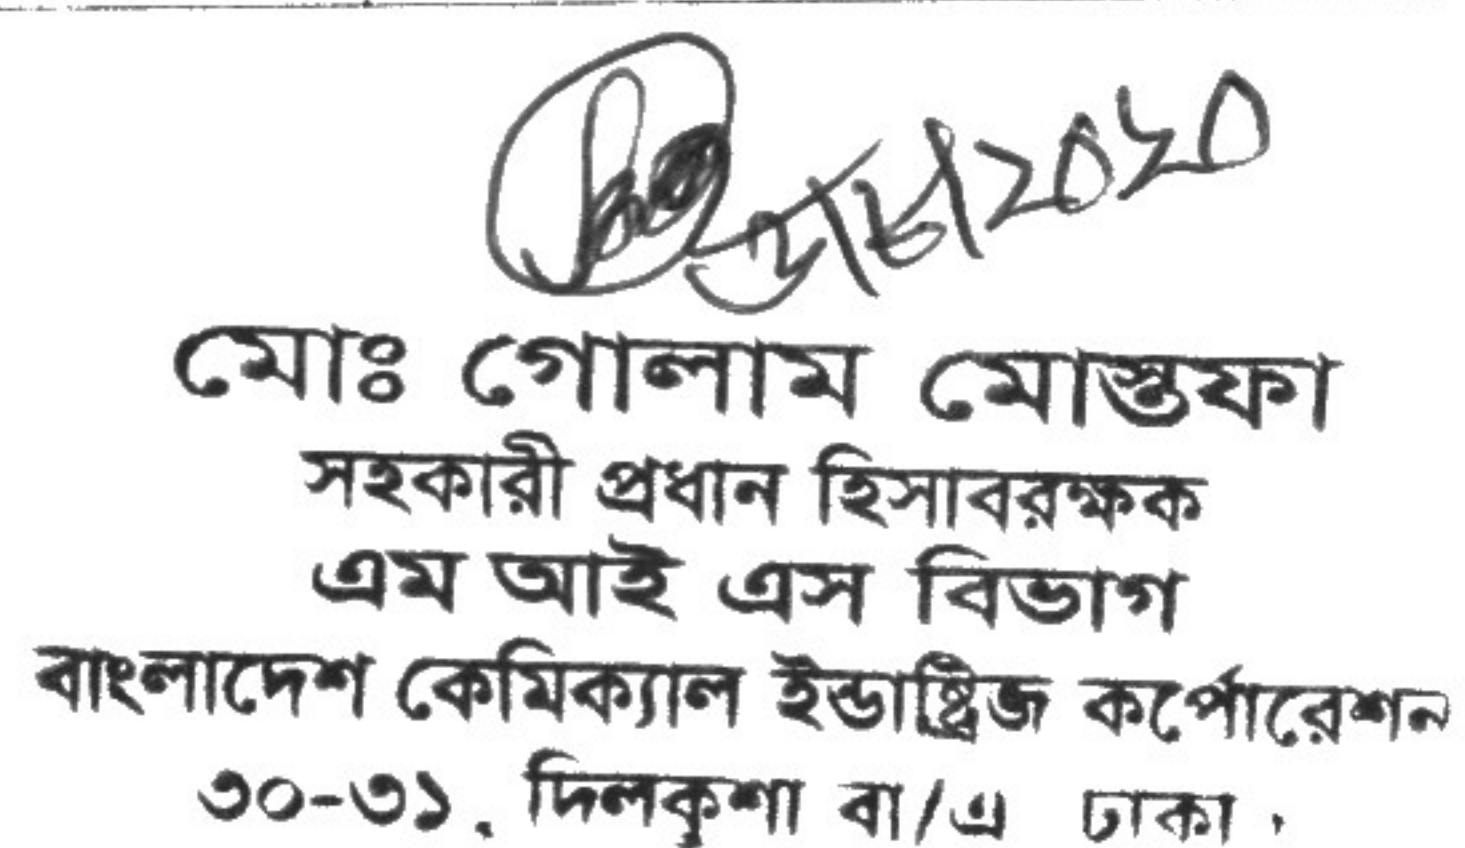 মোঃ গোলাম মোস্তফা
সহকারী প্রধান হিসাবরক্ষক
এম আই এস বিভাগ
বাংলাদেশ কেমিক্যাল ইন্ডাষ্ট্রিজ কর্পোরেশন
৩০-৩১, দিলকুশা বা/এ ঢাকা।